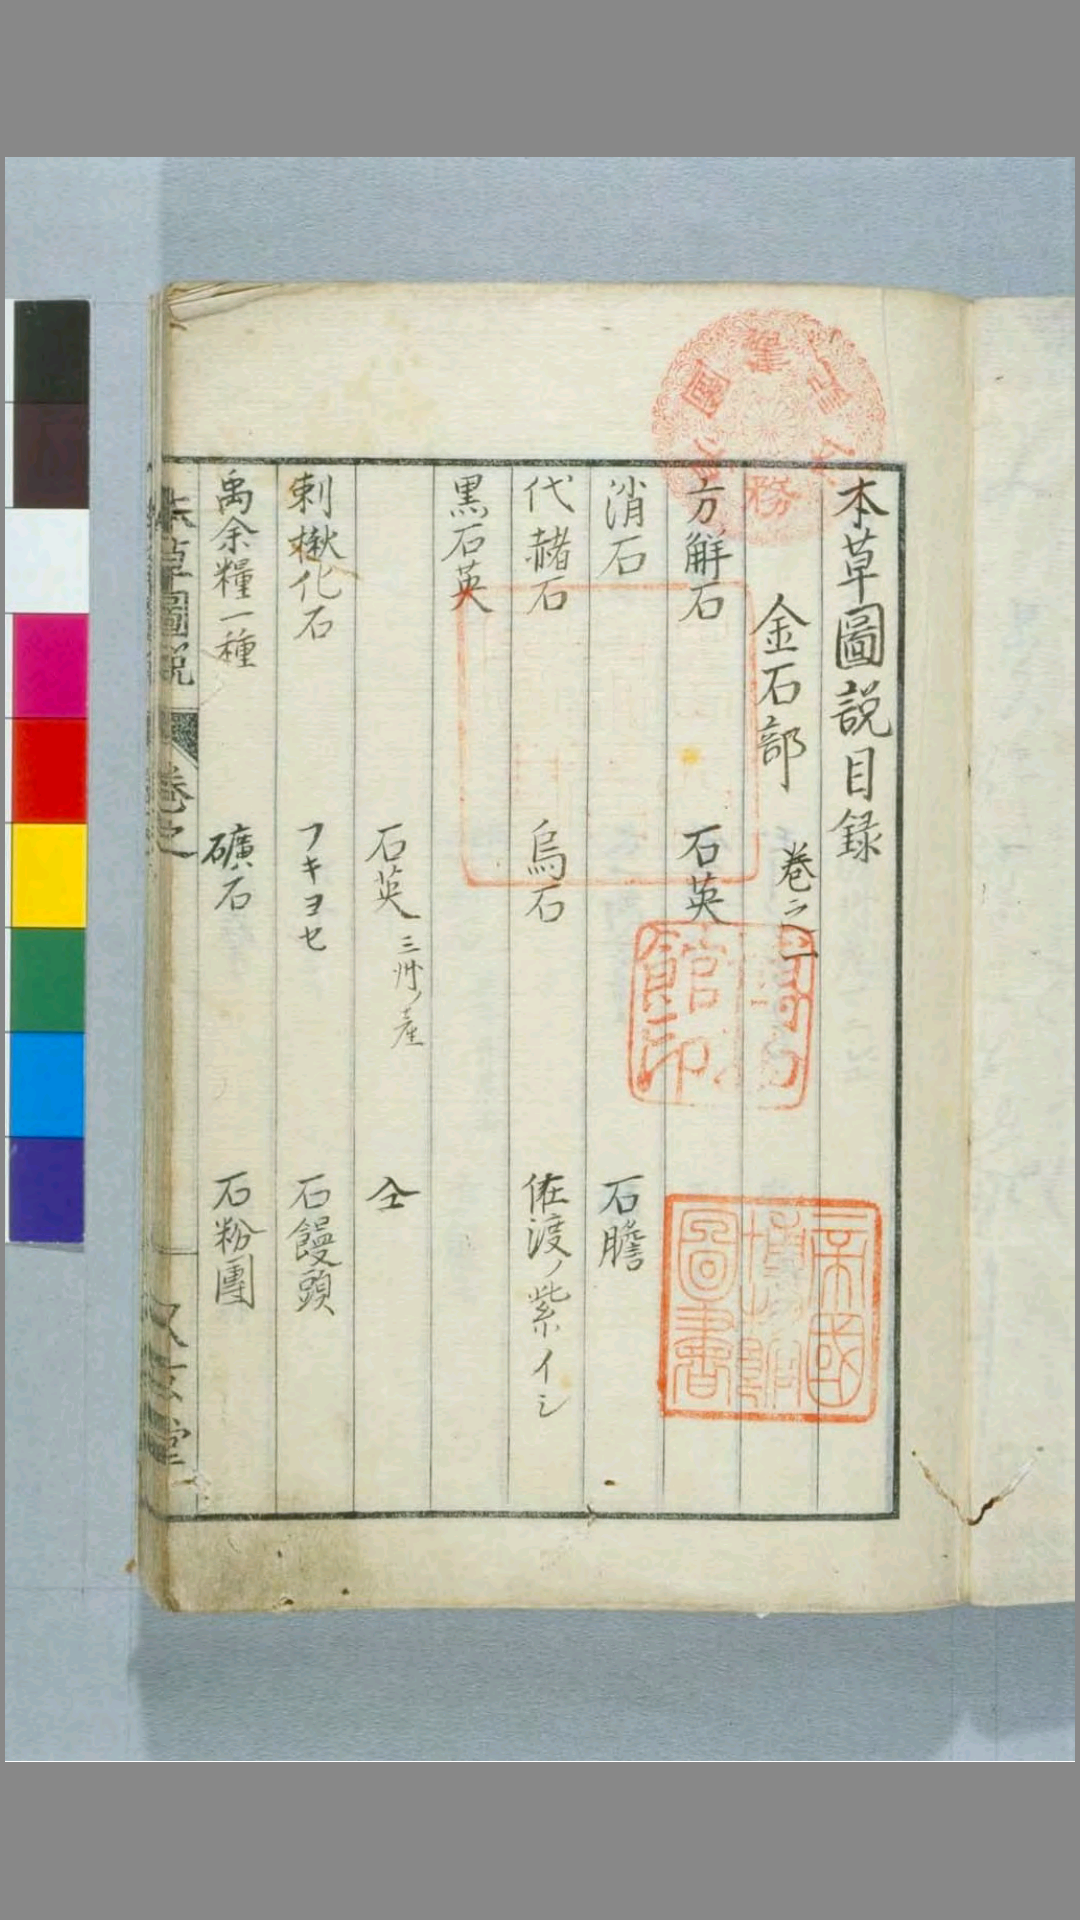 本草圖説目録
金石部 卷之一
方解石 石英
消石 石膽
代赭石 烏石 佐渡ノ紫イシ
黒石英
石英 三州ノ産 仝
刺楸化石 フキヨセ 石饅頭
禹余糧一種 礦石 石粉團
本草圖説 卷之
館印
帝國博物館圖書